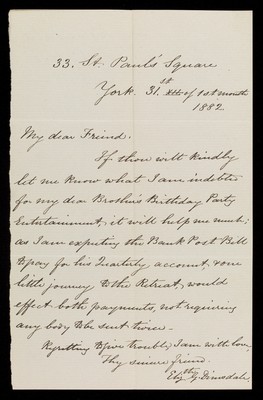 33. St. Paul's Square
York. 31.st of 1st month
1882.
My dear Friend.
If thou wilt kindly
let me know what I am indebted
for my dear Brother's Birthday Party
Entertainment, it will help me much;
as I am expecting the Bank Post Bill
to pay for his Quarterly account, & one
little journey to the Retreat, would
effect both payments, not requiring
any body to be sent twice —
Regretting to give trouble, I am with love,
Thy sincere friend.
Elizth G. Dimsdale.